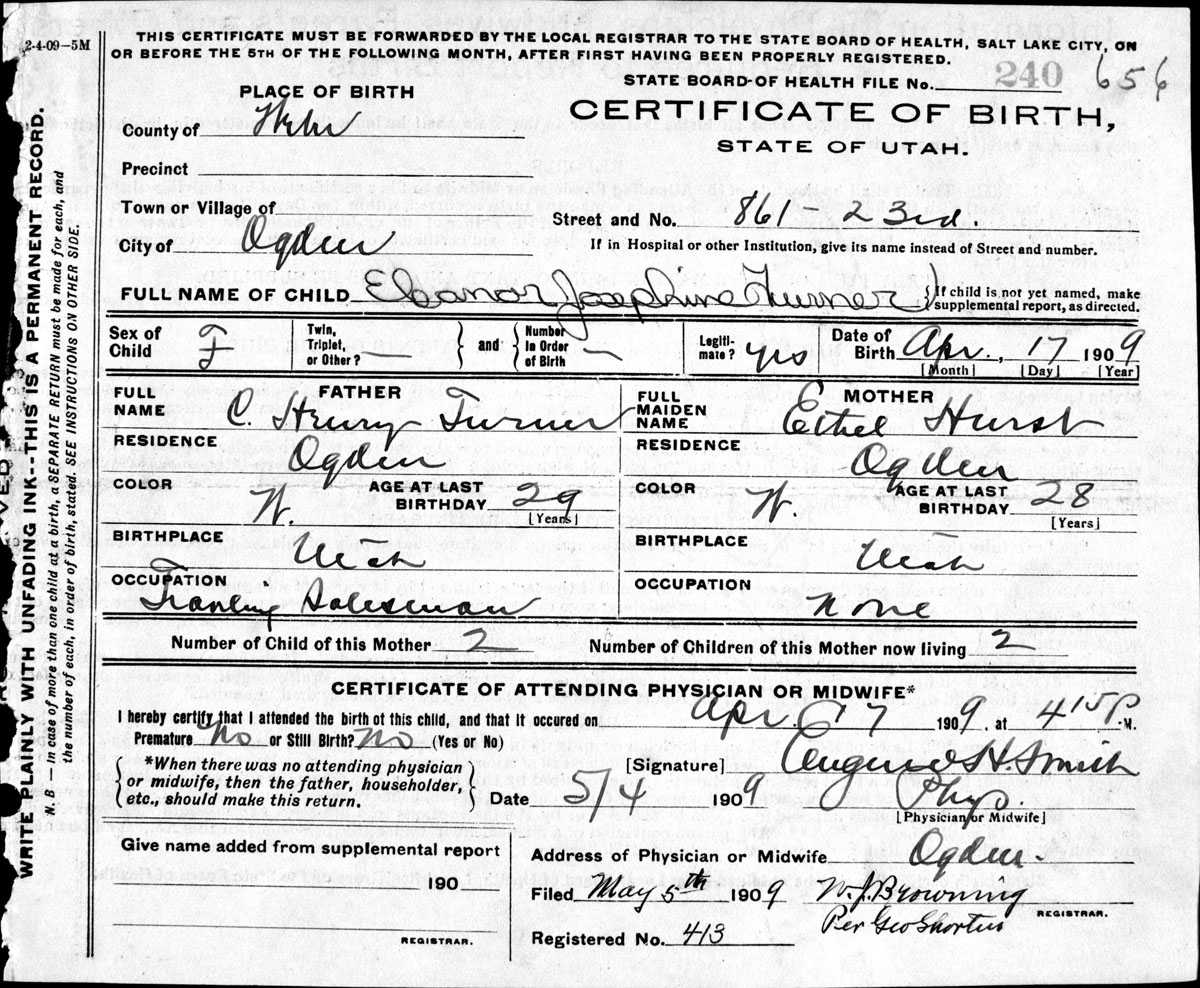 2-4-09-5M
THIS CERTIFICATE MUST BE FORWARDED BY THE LOCAL REGISTRAR TO THE STATE BOARD OF HEALTH, SALT LAKE CITY, ON
OR BEFORE THE 5TH OF THE FOLLOWING MONTH, AFTER FIRST HAVING BEEN PROPERLY REGISTERED.
STATE BOARD OF HEALTH FILE No. 240 656
PLACE OF BIRTH
CERTIFICATE OF BIRTH,
STATE OF UTAH.
County of Weber
Precinct
Town or Village of
Street and No. 861 - 23rd.
City of Ogden
If in Hospital or other Institution, give its name instead of Street and number.
FULL NAME OF CHILD Eleanor Josephine Turner { If child is not yet named, make
supplemental report, as directed.
Sex of Child F Twin, Triplet, or Other? — } and { Number in Order of Birth — Legiti- mate? yes Date of Birth Apr., 17 1909
[Month] [Day] [Year]
FATHER
FULL NAME C. Henry Turner
MOTHER
FULL MAIDEN NAME Ethel Hurst
RESIDENCE Ogden
RESIDENCE Ogden
COLOR W. AGE AT LAST BIRTHDAY 29 [Years]
COLOR W. AGE AT LAST BIRTHDAY 28 [Years]
BIRTHPLACE Utah
BIRTHPLACE Utah
OCCUPATION Traveling Salesman
OCCUPATION None
Number of Child of this Mother 2 Number of Children of this Mother now living 2
CERTIFICATE OF ATTENDING PHYSICIAN OR MIDWIFE*
I hereby certify that I attended the birth of this child, and that it occured on Apr. 17 1909 at 415 P. M.
Premature No or Still Birth? No (Yes or No)
*When there was no attending physician
or midwife, then the father, householder,
etc., should make this return.
[Signature] Eugene H. Smith
Date 5/4 1909 Phys.
[Physician or Midwife]
Give name added from supplemental report
190
REGISTRAR.
Address of Physician or Midwife Ogden.
Filed May 5th 1909 W. J. Browning
REGISTRAR.
Per Geo
Registered No. 413
WRITE PLAINLY WITH UNFADING INK--THIS IS A PERMANENT RECORD.
N. B — In case of more than one child at a birth, a SEPARATE RETURN must be made for each, and
the number of each, in order of birth, stated. SEE INSTRUCTIONS ON OTHER SIDE.